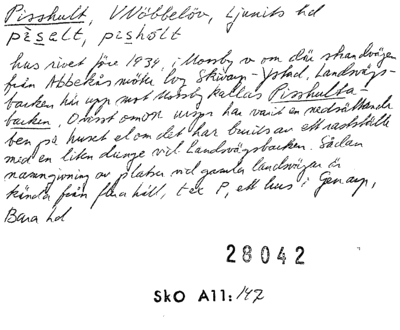 Pisshult, V Vöbbelöv, Ljunits hd
pi̱selt, pi̱sholt
hus rivet före 1934, i Mossby v om där strandvägen
från Abbekås möter lvg Skivarp-Ystad. Landsvägs-
backen här upp mot Mossby kallas Pisshulta-
backen. Ovisst om urspr har varit en nedsättande
ben på huset el om det har funnits av ett rastställe
med en liten dunge vid Landsvägsbacken. Sådan
namngivning av platser vid gamla landsvägar är
kända från flera håll, t ex P, ett hus i Genarp,
Bara hd
28042
SkO All: 147